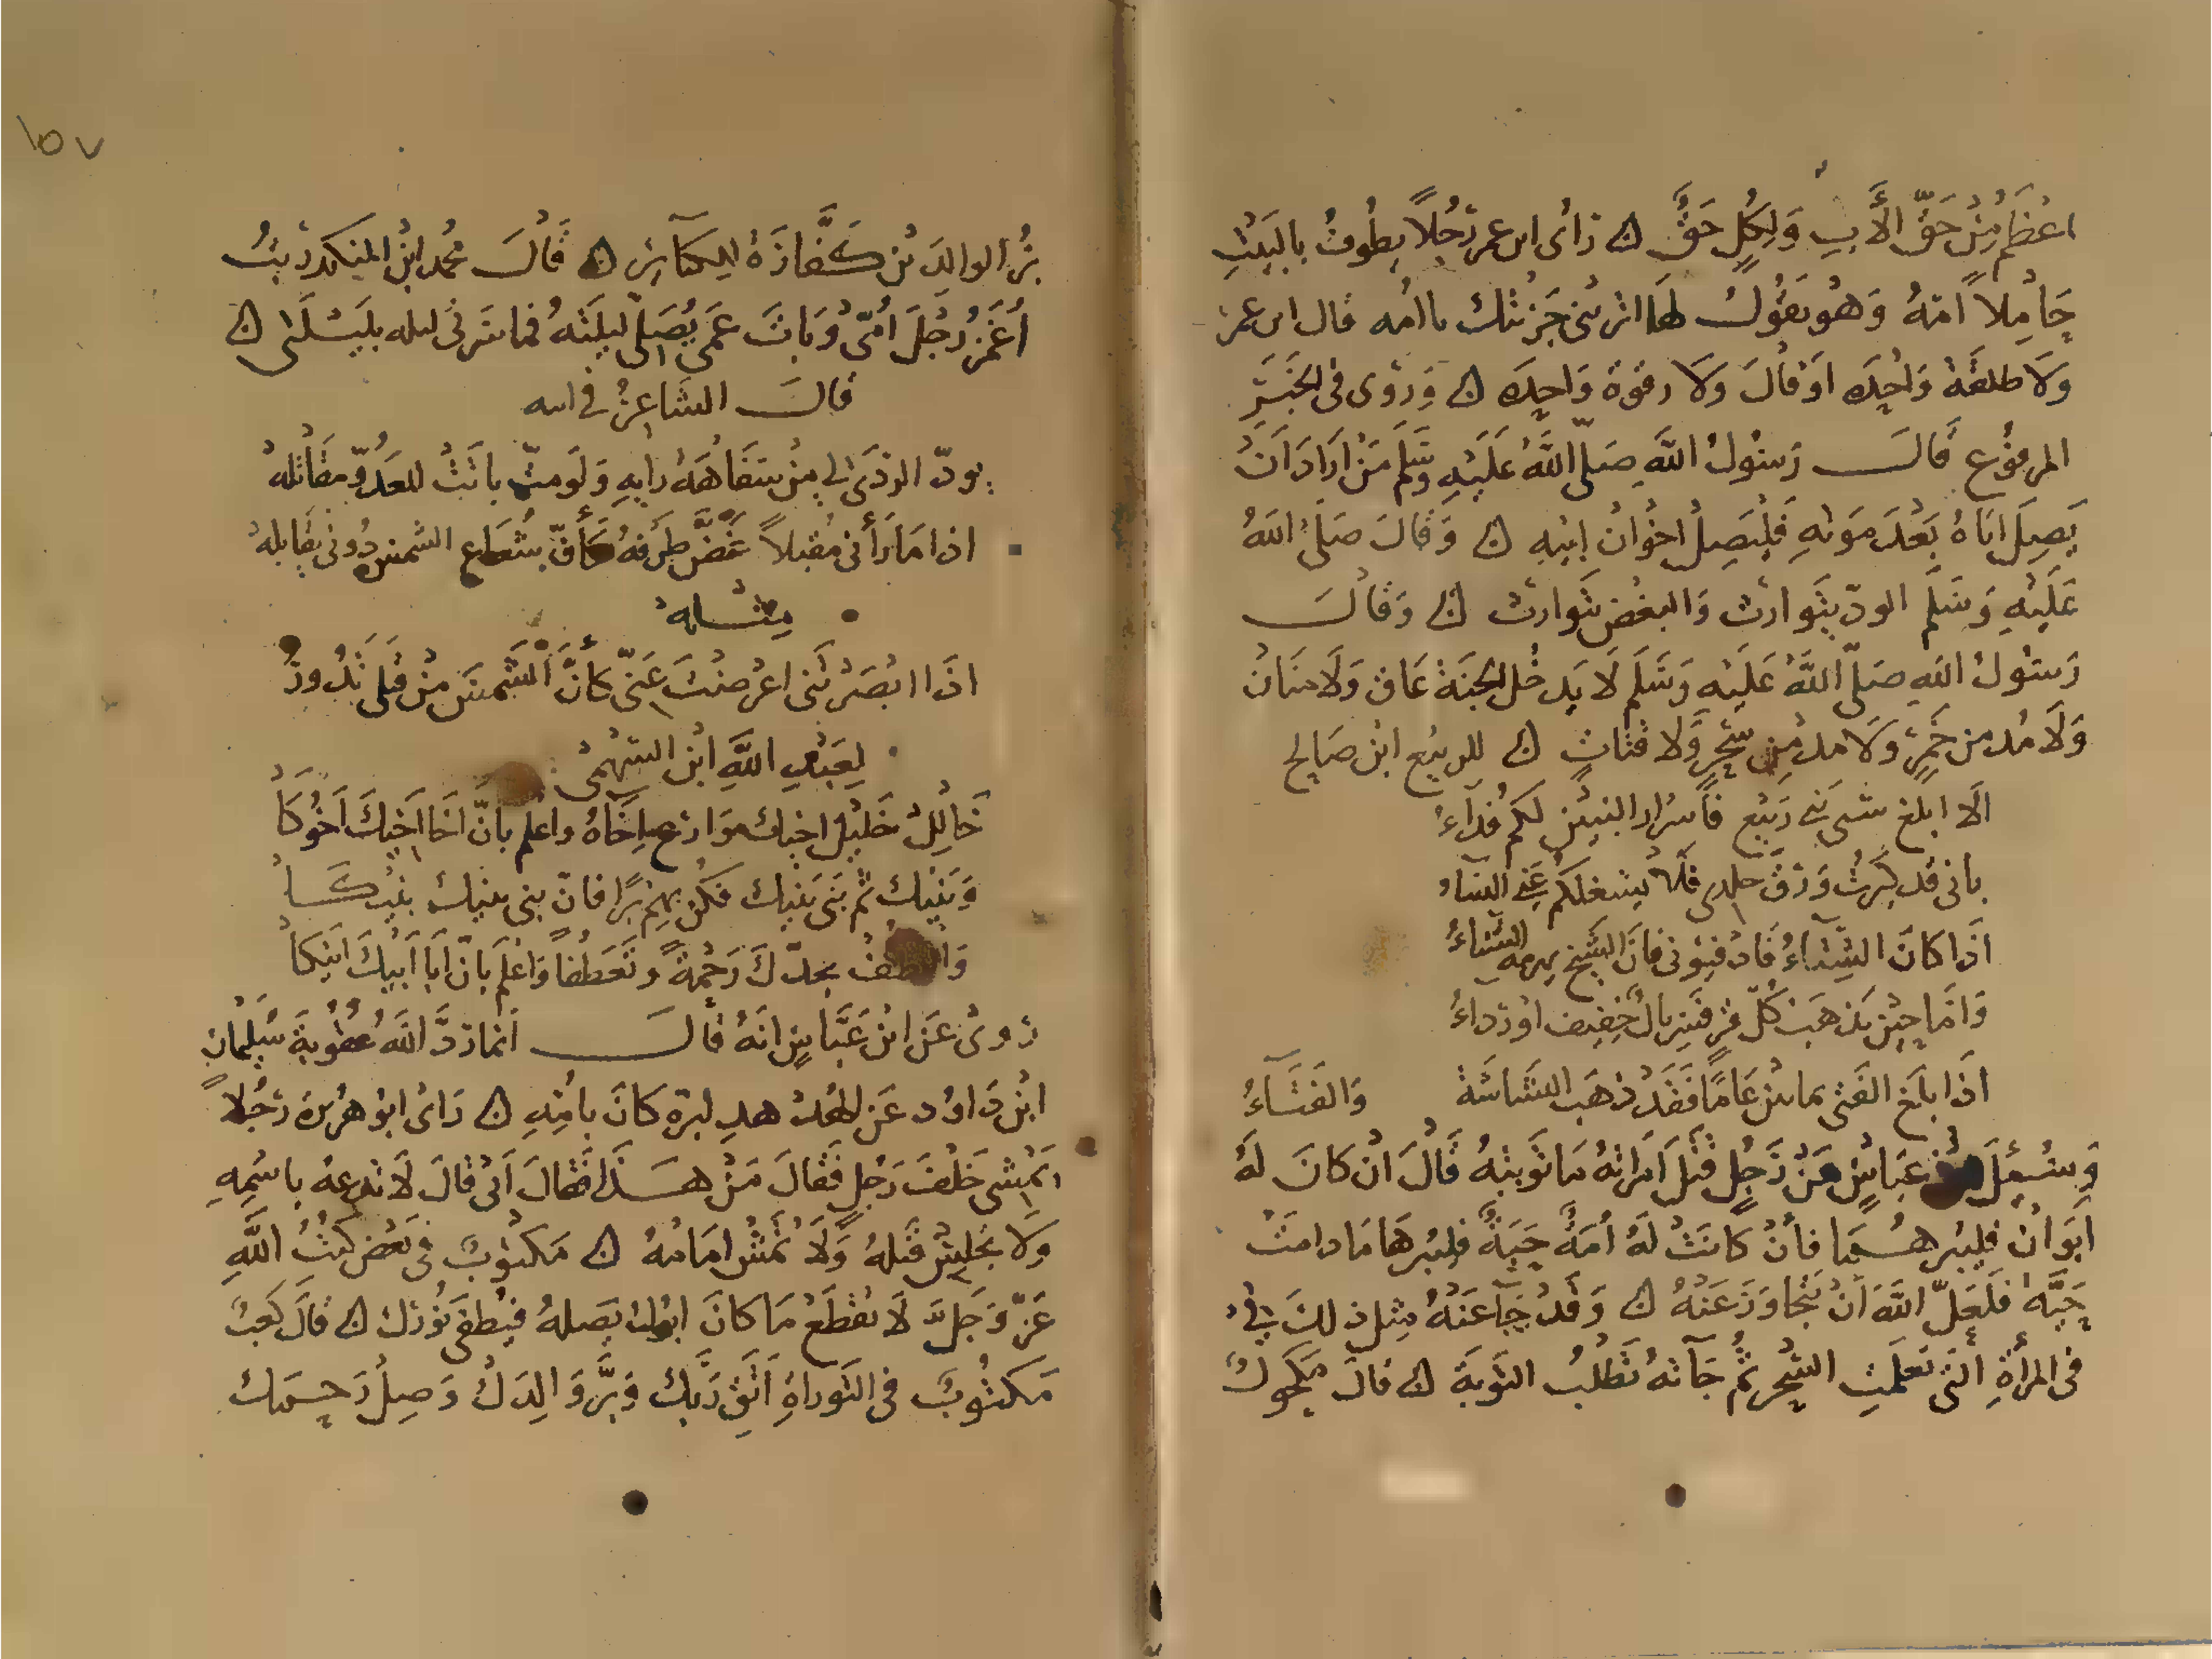 اعْظَمُ مِنْ حَقِّ الأَبِ وَلِكُلٍ حَقٌّ ن رَأى ابن عمر رَجُلاً يطُوفُ بالبَيْتِ
حَامِلاً امّهُ وَهُو يَقُولُ لهَا اتريْنِي جَزيْتك يا امّه قال ابن عمر
وَلَا طلقَة وَاحِدَه اوْ قالَ وَلَا زفرة وَاحِدَه ن وَرُوى فى الخَبَرِ
المرفوع قَالَ رَسُولُ اللَّهِ صَلّى اللَّهُ عَلَيْهِ وسَلّمَ مَنْ ارَادَ انْ
يَصِلَ ابَاهُ بَعْدَ مَوتهِ فَلْيَصِلْ اخْوَانْ ابِيْهِ ن وَقَالَ صَلّى اللهُ
عَلَيْهِ وَسَلّمَ الودّ يتَوارث وَالبغض يتَوارث ن وَقَالَ
رَسُولُ اللهِ صَلّى اللَّهُ عَلَيْهِ وَسَلّمَ لَا يَدخُل الجنَةَ عَاق وَلَا منَان
وَلَا مُدمن خَمرٍ وَلَا مدمِن سِحْرٍ وَلا قتاتٍ ن للربيْع ابْن صَالِح
الَا ابلغ بنى بَنِي رَبيْع فأشرار البنِيْن لكم فدآءُ
بانى قد كَبرتُ وَرَقّ جلدى فَلا يشغلكم عَنى النسَاء
اذَا كَانَ الشِّتَآءُ فَادْفيُونى فَانَ الشّيخ يهدمه الشّتاءُ
وَامَا حِيْن يَذهَبْ كُلّ قرٍ فسِربالٌ خفيف اوْ ردَاءُ
اذَا بلَغ الفَتى مايتيْن عَامًا فقَدْ ذهَب البشَاشَة وَالفَتَآءُ
وَسُئِلَ ابنُ عبَاسٍ عَنْ رَجُلٍ قتَلَ امرَاتهُ مَا تَوبتهُ قَالَ انْ كَانَ لَهُ
ابَوَانْ فليبرهُمَا فأنْ كَانتْ لَهُ امَةٌ حَيَةٌ فليبرهَا مَا دامَتْ
حَيَّة فلَعَلّ اللهَ انْ يتَجَاوَزَ عَنْهُ ن وَقَدْ جَآ عَنْهُ مِثل ذلكَ
فى المرأةِ الّتى تعلمَتِ السِّحْر ثُمّ جَآته تطْلُبُ التّوبَة ن قالَ مكحولٌ
بِرُ الوالِدَيْن كَفَّارَةٌ لِلكبَآئِرِ ن قَالَ مُحمد ابْنُ المنكدر بتُّ
اغمزُ رِجْلَ امّى وَبَاتَ عَمِّى يُصَلِّى ليلَتهُ فما سَرنى ليله بليَلتى ن
قالَ الشَاعِرُ فى ابنه
يودّ الردَى لى مِنْ سَفَاهَةِ رايهِ وَلَو متّ بَانَتْ للعَدُوّ مقَاتلهُ
اذا مَا رَأنى مقبلاً غَضَّ طرفهُ كَأَنّ شُعَاع الشمس دُونى يقابلهُ
مِثْلهُ
اذَا ابْصَرْتَنى اعْرَضْتَ عَنّى كَأنَّ الشّمسَ مِنْ قبلى تَدُورُ
لِعَبْدِ اللَّهِ ابْن السّهْمى
خَالِلْ خَلِيْل اخيك وَارْع اِخَاهُ واعلم بانّ اخَا اخِيْكَ اخُوكَا
وَبَنِيْك ثُم بَنى بَنِيْك فكُنْ بهم بَرًا فانّ بنى بنيك بَنُوكَا
وَالطُفْ بجدّكَ رَحْمةً وتَعَطُفًا وَاعْلم بانّ ابَا ابِيْكَ ابُوكَا
رُوىَ عَن ابْن عَبَّاسٍ انَهُ قَالَ انّما رَدَّ اللهُ عُقُوبَةَ سُلَيْمَان
ابْن دَاوُد عَن الهُدْهدِ لبرّه كَانَ بامّهِ ن رَاى ابُو هُرَيرَة رَجُلاً
يَمْشى خَلفَ رَجُلٍ فَقَالَ مَنْ هَذَا فقَالَ ابى قَالَ لَا تدعهُ باسْمِهِ
وَلَا تجلِسْ قَبْلهُ وَلَا تَمْشِ امَامهُ ن مَكْتُوبٌ فى بَعْض كتُبِ اللَّهِ
عَزّ وَجَلَّ لَا تقطَعْ مَا كَانَ ابُوكَ يَصِلهُ فيُطفَى نُورُك ن قالَ كَعْبٌ
مَكتُوبٌ فى التَورَاةِ اتّقِ رَبَّك وَبِرَّ وَالِدَيكَ وَصِلْ رَحِمَك
١٥٧